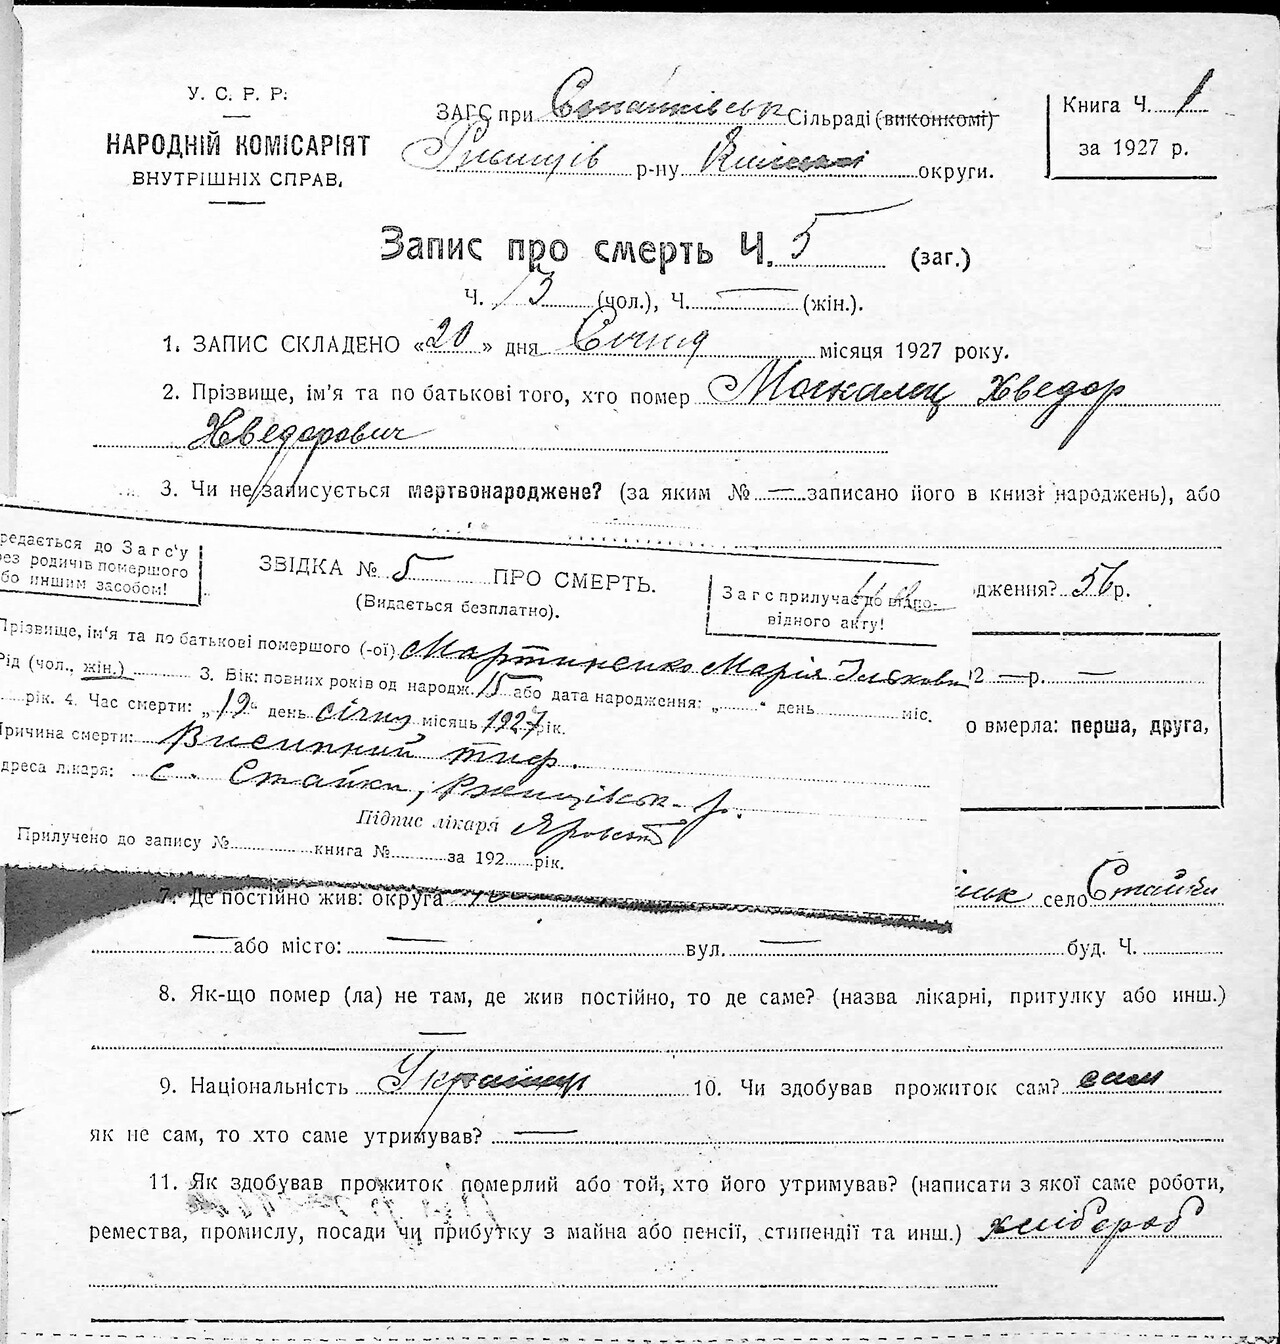 У. С. Р. Р.
НАРОДНІЙ КОМІСАРІЯТ
ВНУТРІШНІХ СПРАВ.
ЗАГС при Стайківськ Сільраді (виконкомі)
Ржищів р-ну Київської округи.
Книга Ч. 1
за 1927 р.
Запис про смерть Ч. 5 (заг.)
Ч. 3 (чол.), Ч. — (жін.).
1. ЗАПИС СКЛАДЕНО «20» дня Січня місяця 1927 року.
2. Прізвище, ім'я та по батькові того, хто помер Москалец Хведор
Хведорович
3. Чи не записується мертвонароджене? (за яким № — записано його в книзі народжень), або
дження? 56 р.
2 — р. —
о вмерла: перша, друга,
редається до Загс'у
рез родичів помершого
бо иншим засобом!
ЗВІДКА № 5 ПРО СМЕРТЬ.
(Видається безплатно).
Загс прилучає до відпо-
відного акту!
Прізвище, ім'я та по батькові помершого (-ої) Мартиненко Марія Ільковн
Рід (чол., жін.) 3. Вік: повних років од народж. 15 або дата народження: „ “ день міс.
рік. 4. Час смерти: „19“ день січня місяць 1927 рік.
Причина смерти: Висипний тиф.
дреса лікаря: с. Стайки, Ржищівськ. р.
Підпис лікаря
Прилучено до запису № книга № за 192 рік.
7. Де постійно жив: округа село Стайки
— або місто: — вул. — буд. Ч.
8. Як-що помер (ла) не там, де жив постійно, то де саме? (назва лікарні, притулку або инш.)
—
9. Національність Українц 10. Чи здобував прожиток сам? сам
як не сам, то хто саме утримував? —
11. Як здобував прожиток померлий або той, хто його утримував? (написати з якої саме роботи,
ремества, промислу, посади чи прибутку з майна або пенсії, стипендії та инш.) хлібороб